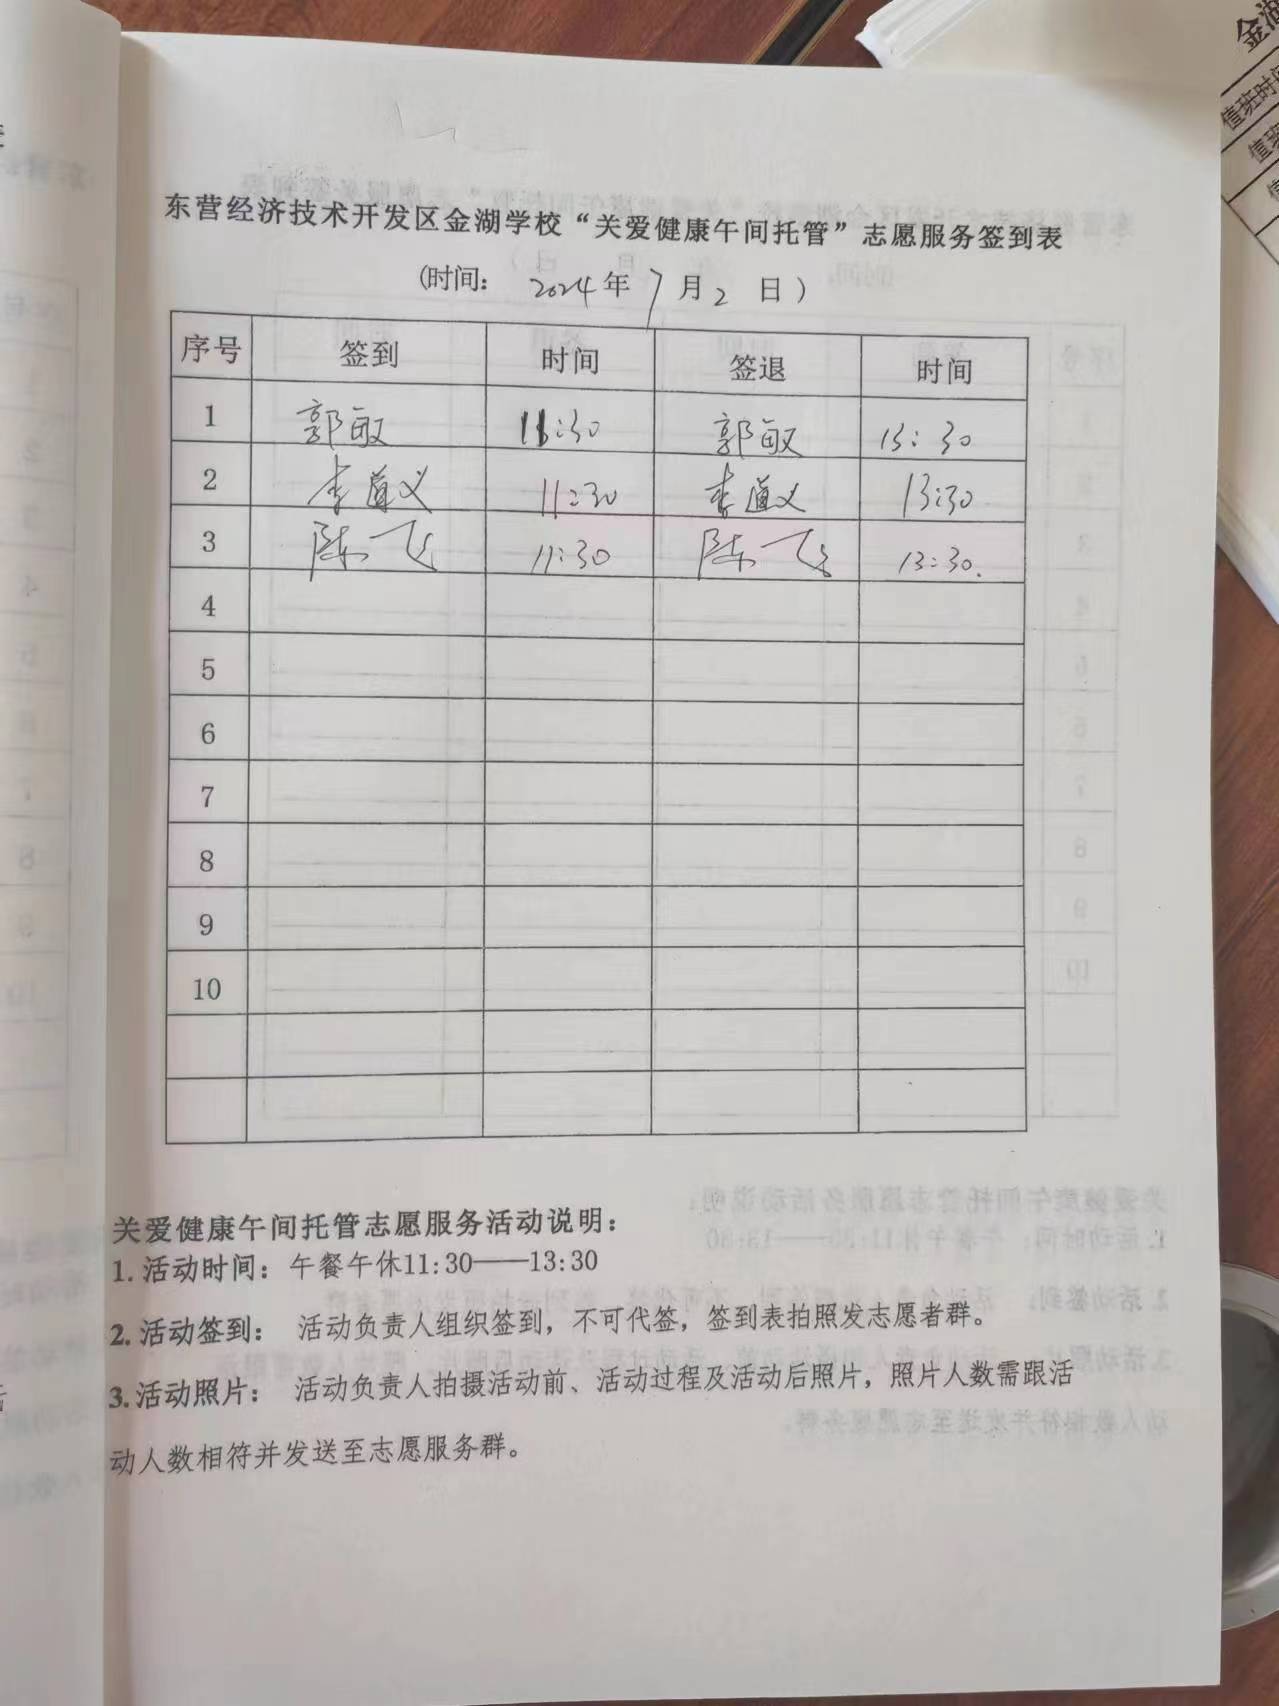 东营经济技术开发区金湖学校“关爱健康午间托管”志愿服务签到表
(时间： 2024年 7月2 日）
序号 签到 时间 签退 时间
1 郭敏 11:30 郭敏 13:30
2 李道义 11:30 李道义 13:30
3 陈飞 11:30 陈飞 13:30.
4
5
6
7
8
9
10
关爱健康午间托管志愿服务活动说明：
1.活动时间：午餐午休11:30——13:30
2.活动签到： 活动负责人组织签到，不可代签，签到表拍照发志愿者群。
3.活动照片： 活动负责人拍摄活动前、活动过程及活动后照片，照片人数需跟活
动人数相符并发送至志愿服务群。
金湖
值班时间
值班